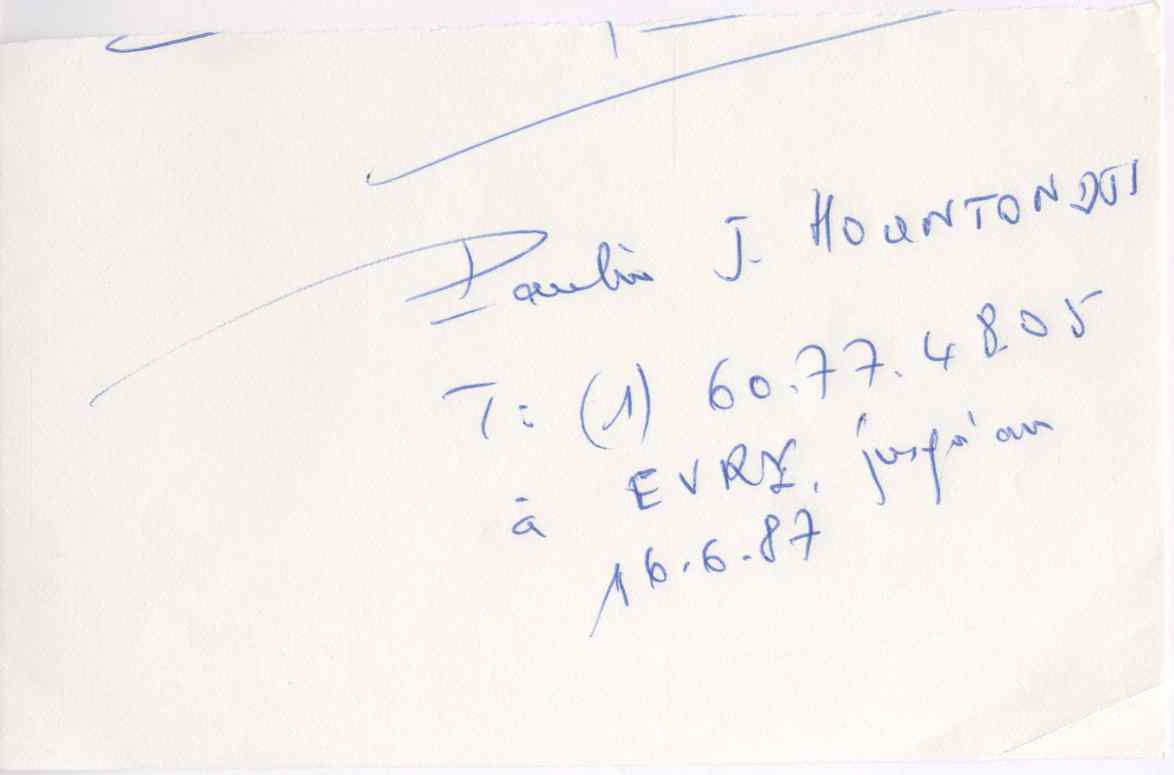 Paulin J. HOUNTONDJI
T: (1) 60.77.4805
à EVRY, jusqu'au
16.6.87